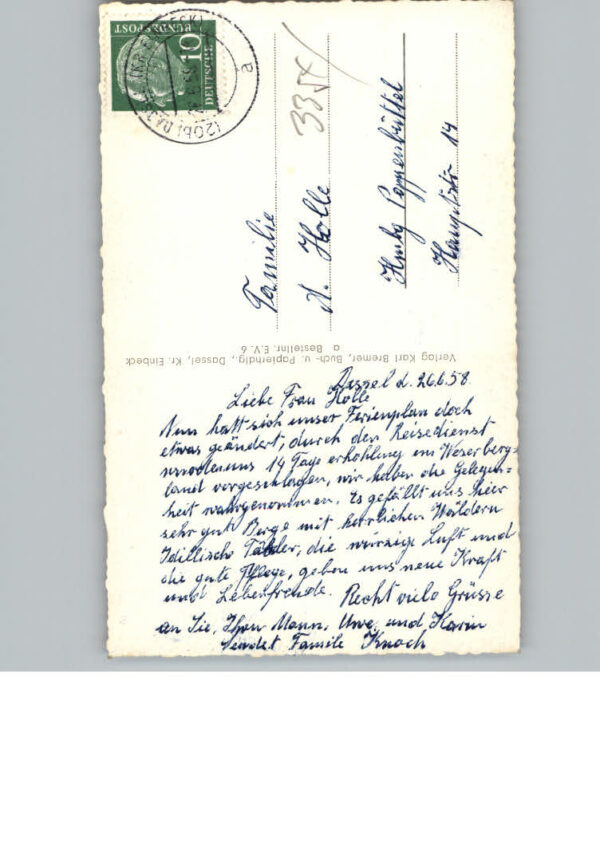 DEUTSCHE
BUNDESPOST
10
(20b) DASSEL
a
Familie
A. Holle
Hmbg Poppenbüttel
Hauptstr 14
Verlag Karl Bremer, Buch- u. Papierhdlg., Dassel, Kr. Einbeck
a Bestellnr. E.V. 6
Dassel d. 26.6.58.
Liebe Frau Holle
Nun hatt sich unser Ferienplan doch
etwas geändert, durch den Reisedienst
wurden uns 14 Tage erhohlung im Weserberg-
land vorgeschlagen, wir haben die Gelegen-
heit wahrgenommen. Es gefällt uns hier
sehr gut Berge mit herrlichen Wäldern
Idillische Täler, die würzige Luft und
die gute Pflege, geben uns neue Kraft
und Lebenfreude. Recht viele Grüsse
an Sie, Ihren Mann, Uwe, und Karin
sendet Familie Knoch